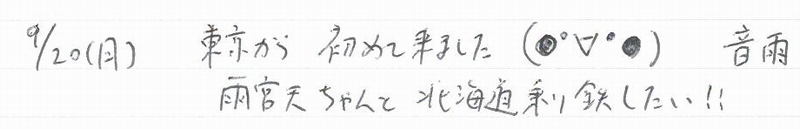 9/20(月) 東京から 初めて来ました (●°∇°●) 音雨
雨宮天ちゃんと 北海道乗り鉄したい!!